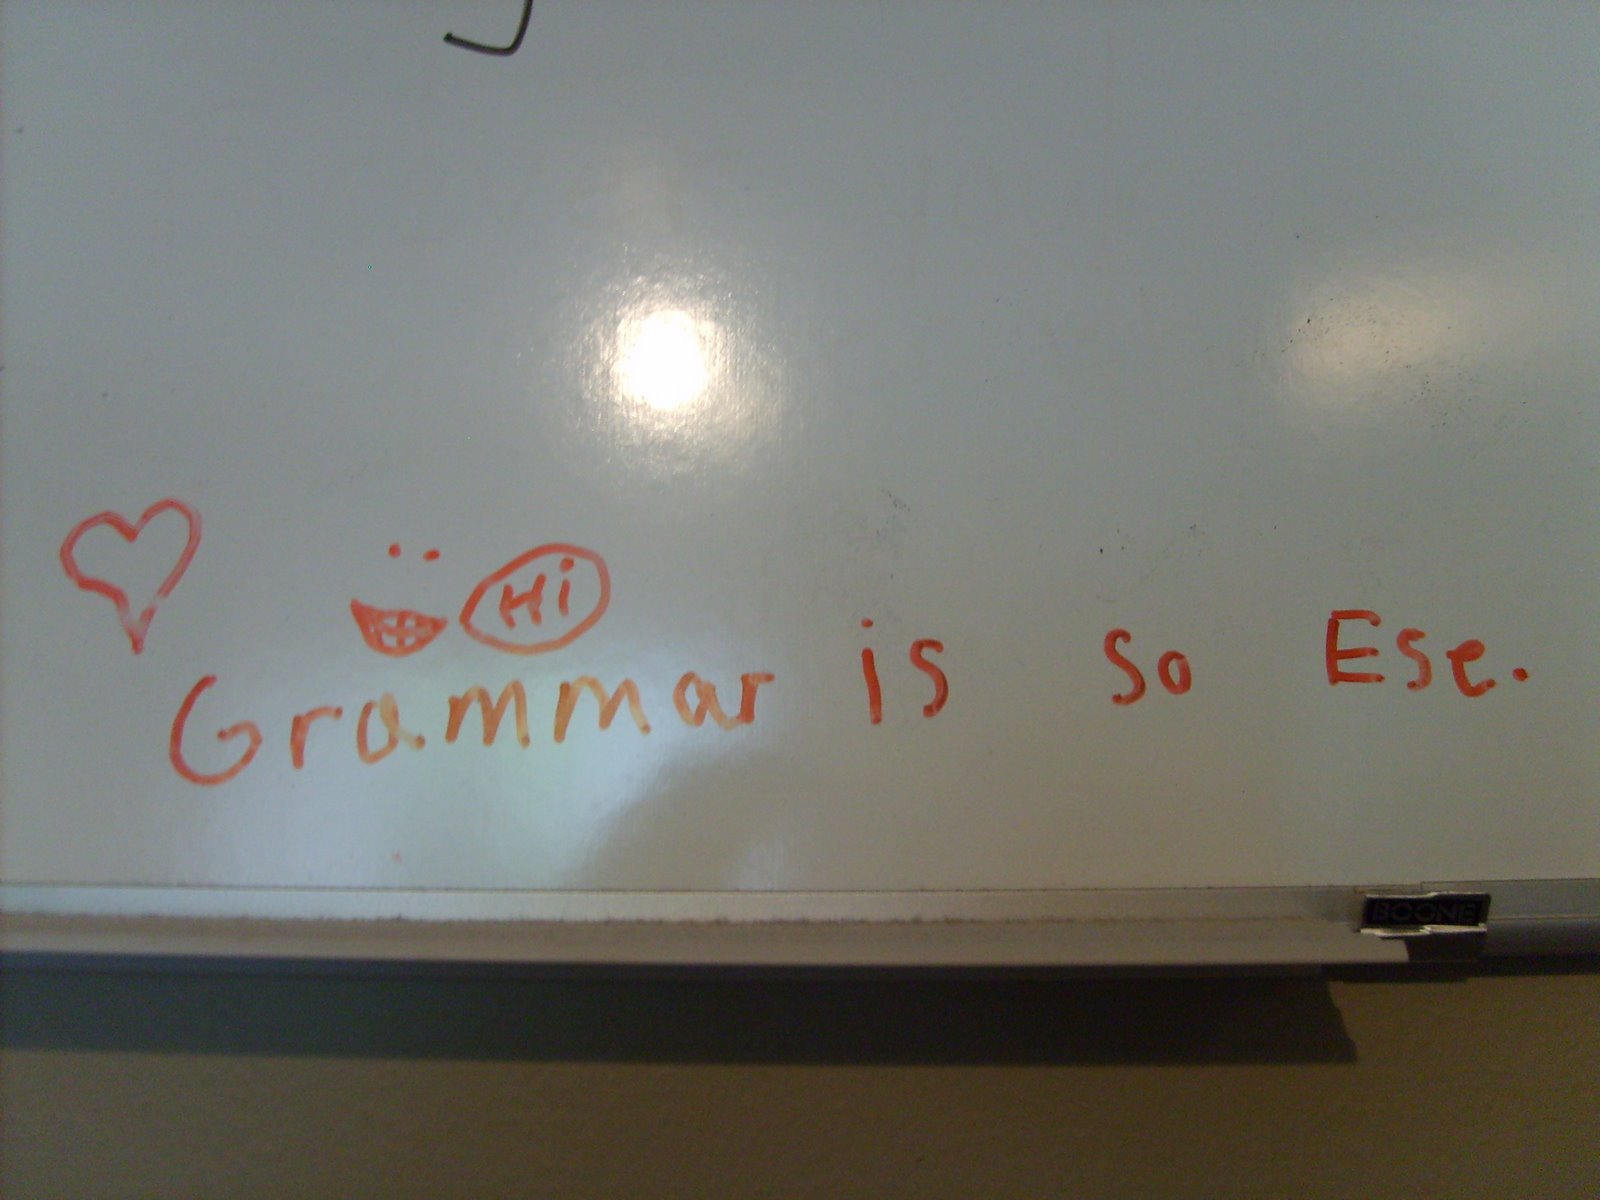 Hi
Grammar is so Ese.
BOONE